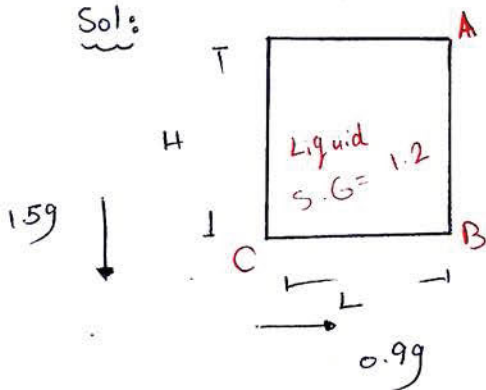 Sol:
A
T
H
Liquid
S.G= 1.2
1.5g
I
C
B
L
0.9g